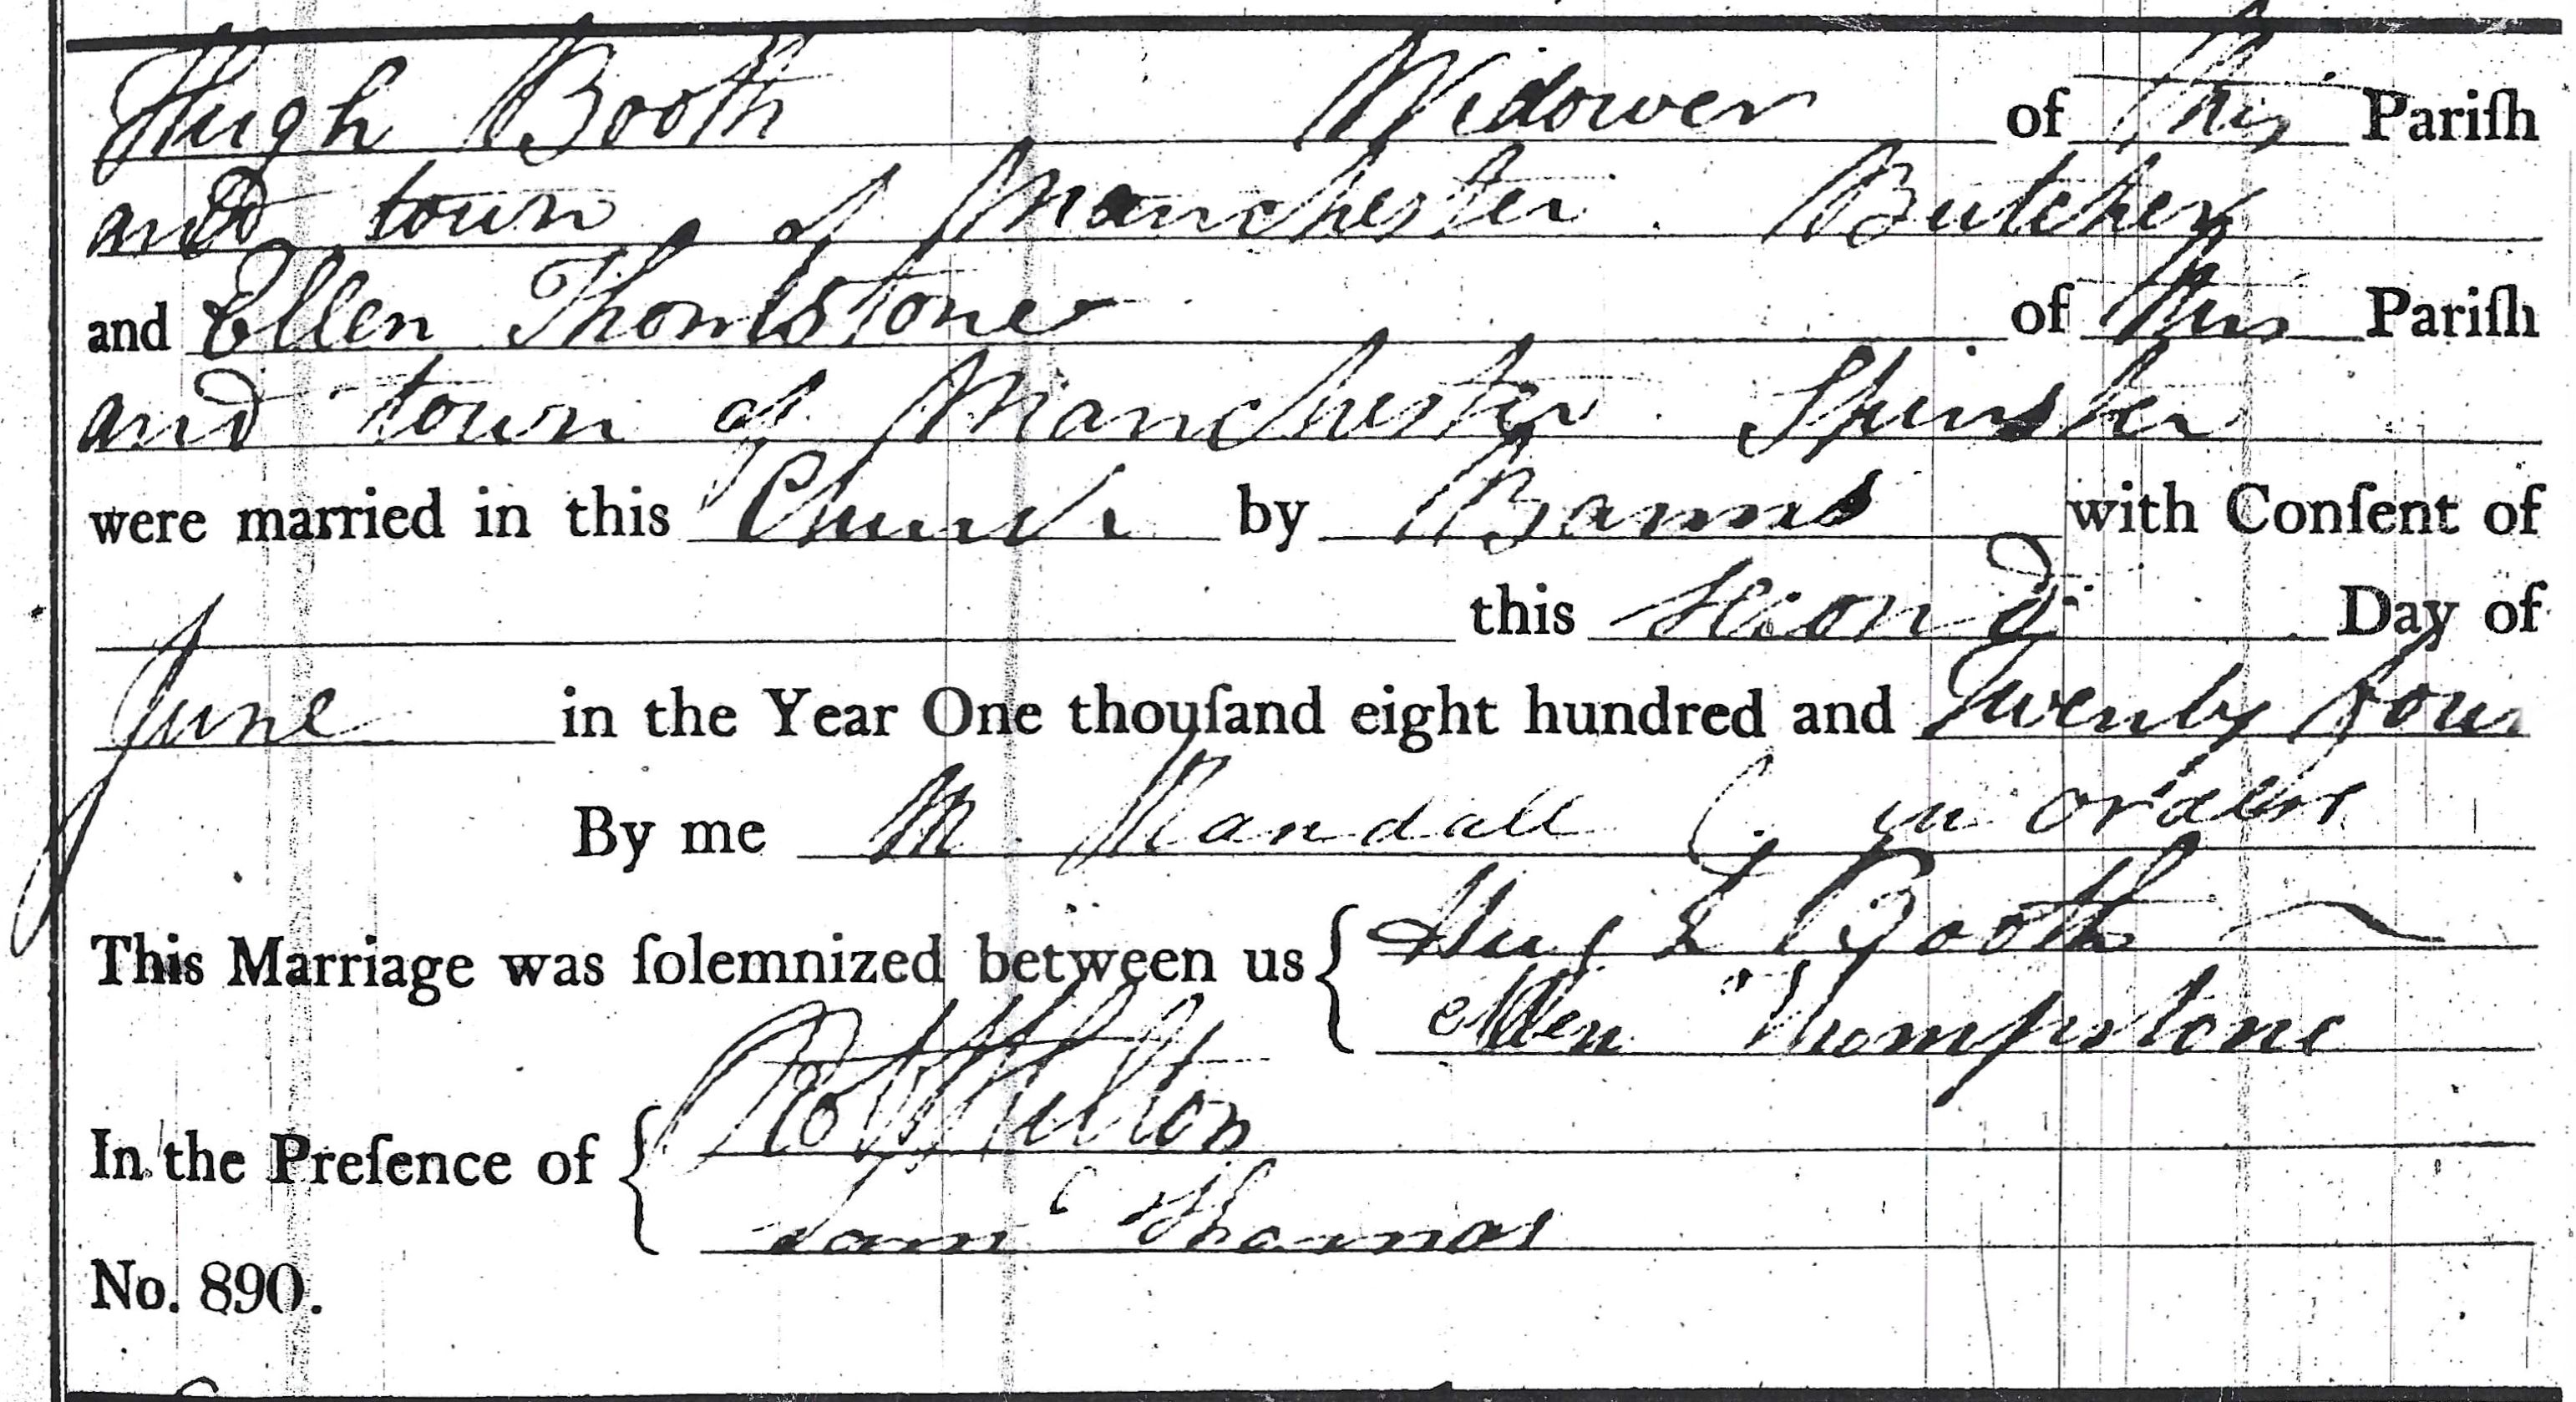 Hugh Booth Widower of this Pariſh
and town of Manchester Butcher
and Ellen Thomlstone of this Pariſh
and town of Manchester Spinster
were married in this Church by Banns with Conſent of
this second Day of
June in the Year One thouſand eight hundred and Twenty four
By me M Randall in orders
This Marriage was ſolemnized between us { Hugh Booth
ellen Thompstone
In the Preſence of { Robt Hulton
Saml Thomas
No. 890.